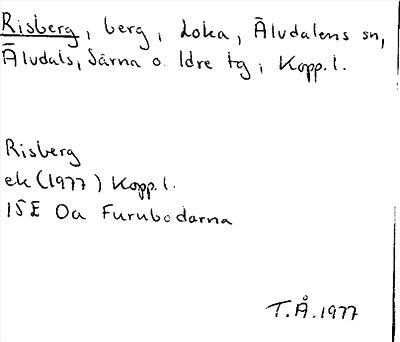 Risberg, berg, Loka, Äludalens sn,
Äludals, Särna o. Idre tg, Kopp.l.
Risberg
ek (1977) Kopp.l.
15E 0a Furubodarna
T.Å. 1977